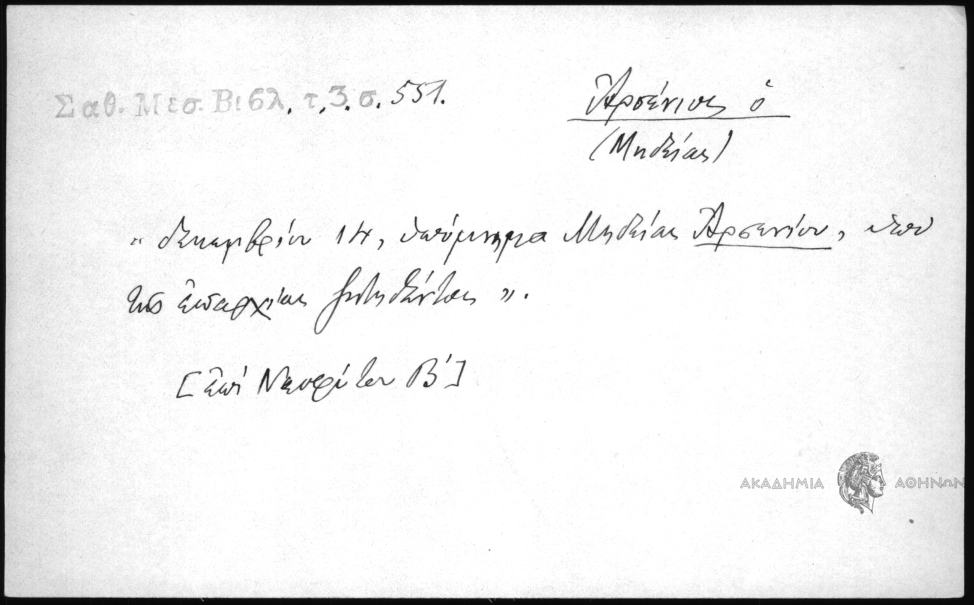 Σαθ. Μεσ. Βιβλ. τ. 3. σ. 551.
Ἀρσένιος ὁ
(Μηδείας)
„ Δεκεμβρίου 14, ὑπόμνημα Μηδείας Ἀρσενίου, ὑπὸ
τῆς ἐπαρχίας ζητηθέντος ".
[ἐπὶ Νεοφύτου Β΄]
ΑΚΑΔΗΜΙΑ ΑΘΗΝΩΝ